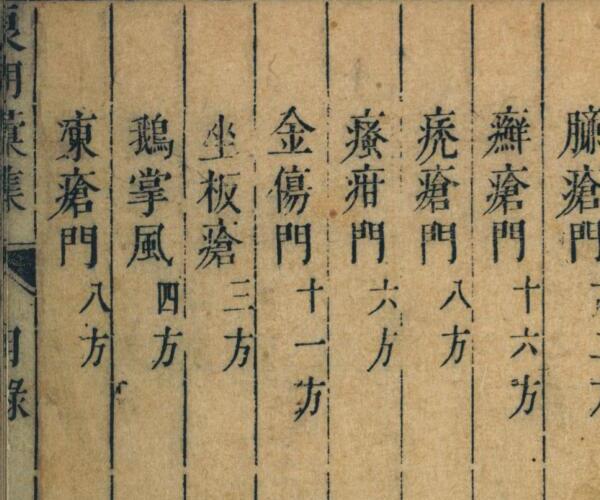 臁瘡門
癬瘡門十六方
禿瘡門八方
瘙疳門六方
金傷門十一方
坐板瘡三方
鵝掌風四方
凍瘡門八方
彙集 目錄